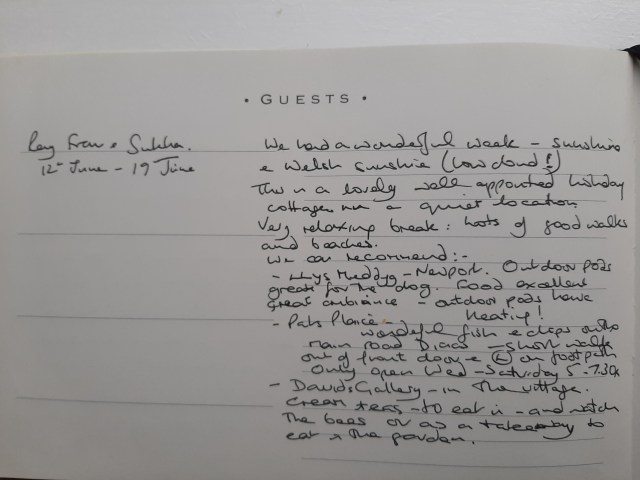 • GUESTS •
Ray Fran & Sukha.
12th June - 19 June
We had a wonderful week - sunshine
& Welsh sunshine (low cloud!)
This is a lovely well appointed holiday
cottage in a quiet location.
Very relaxing break: lots of good walks
and beaches.
We can recommend:-
- Llys Meddyg - Newport. Outdoor pods
great for the dog. Food excellent
Great ambiance - outdoor pods have
heating!
- Pats Plaice -
wonderful fish & chips onto
main road Dinas - short walk
out of front door & on footpath
Only open Wed - Saturday 5 - 7.30
- Davids Gallery - in the village.
Cream teas - to eat in - and watch
the bees or as a takeaway to
eat in the garden.